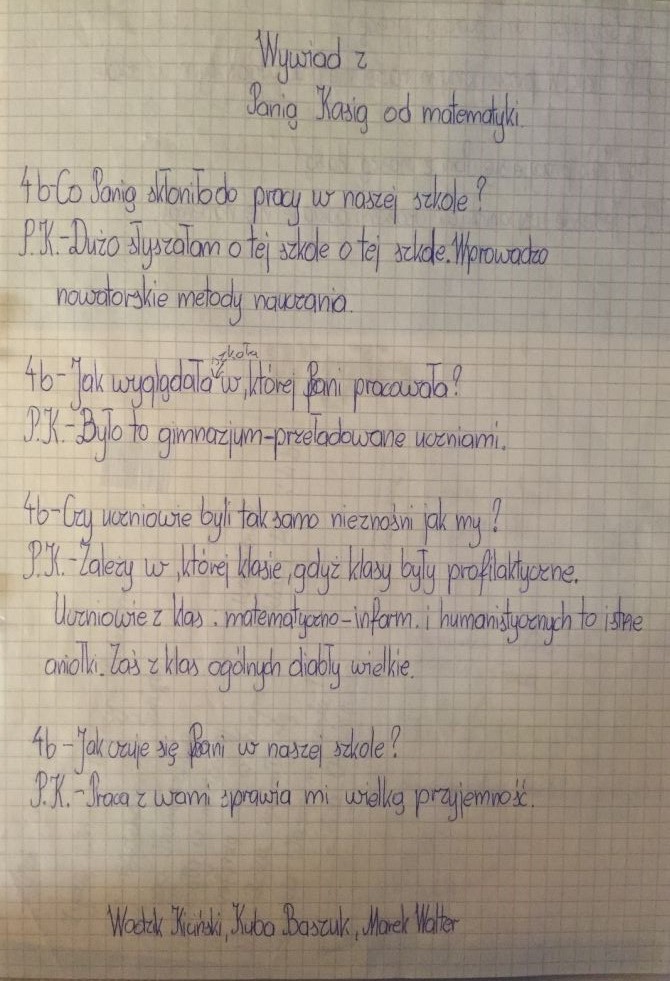 Wywiad z
Panią Kasią od matematyki.
4b-Co Panią skłoniło do pracy w naszej szkole?
P.K.-Dużo słyszałam o tej szkole o tej szkole. Wprowadza
nowatorskie metody nauczania.
szkoła
4b-Jak wyglądała w, której Pani pracowała?
P.K.-Było to gimnazjum-przeładowane uczniami.
4b-Czy uczniowie byli tak samo nieznośni jak my?
P.K.-Zależy w, której klasie, gdyż klasy były profilaktyczne.
Uczniowie z klas. matematyczno-inform. i humanistycznych to istne
aniołki. Zaś z klas ogólnych diabły wielkie.
4b-Jak czuje się Pani w naszej szkole?
P.K.-Praca z wami sprawia mi wielką przyjemność.
Kiciński, Kuba Baszuk, Marek Walter